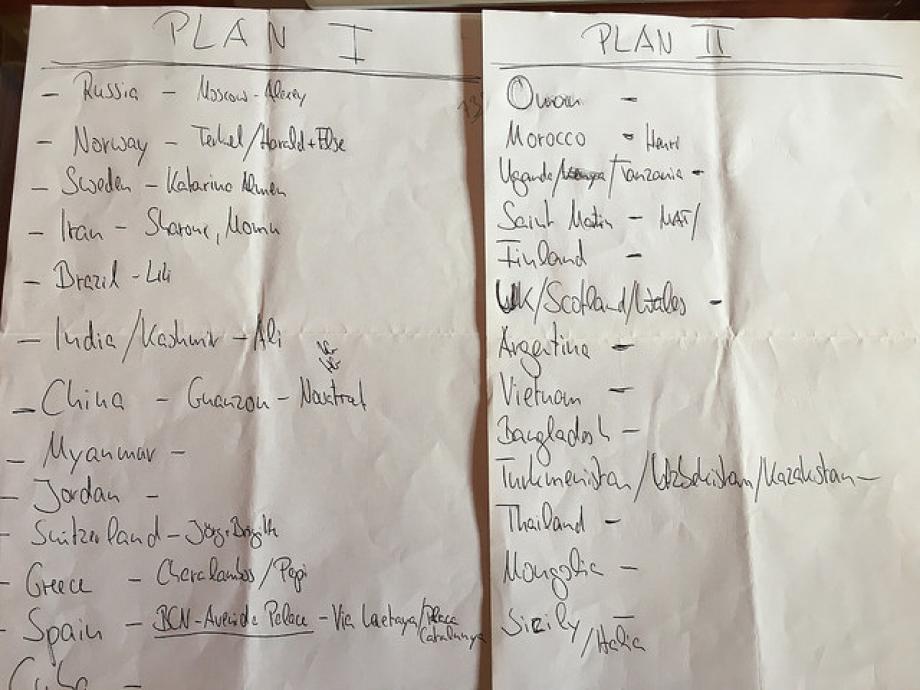 PLAN I
- Russia - Moscow - Alexey
- Norway - Terkel/Harald + Else
- Sweden - Katarina Almen
- Iran - Sharone, Momu
- Brazil - Lili
- India/Kashmir - Ali
- China - Guanzon -
- Myanmar -
- Jordan -
- Switzerland - Jörg + Brigitte
- Greece - Charalambos/Pepi
- Spain - BCN - Avenida Palace - Via Laetaya/Placa Catalunya
Cuba -
PLAN II
Oman -
Morocco - Henri
Uganda/Tanzania -
Saint Matin - MAT/
Finland -
UK/Scotland/Wales -
Argentina -
Vietnam -
Bangladesh -
Turkmenistan/Uzbekistan/Kazakstan -
Thailand -
Mongolia -
Sicily/Italia -